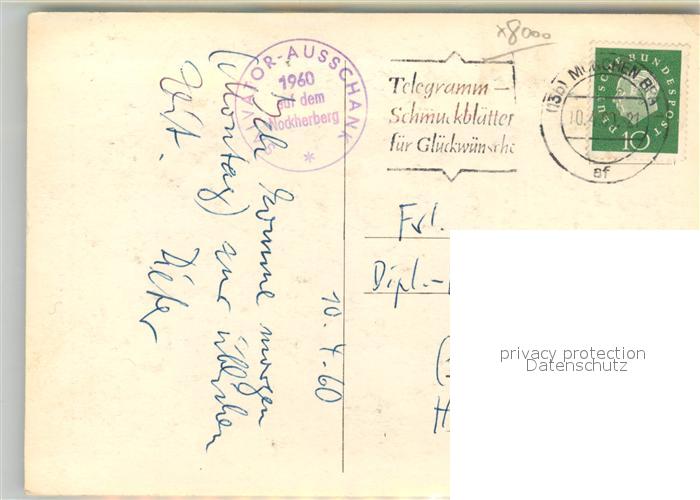 x8000
SALVATOR-AUSSCHANK
1960
auf dem
Nockherberg
*
Telegramm-
Schmuckblätter
für Glückwünsche
(13b) MÜNCHEN BPA
af
DEUTSCHE BUNDESPOST
10
10.4.60
Ich komme morgen
(Montag) zur üblichen
Zeit.
Dieter
Frl.
Dipl.-
(
H
privacy protection
Datenschutz